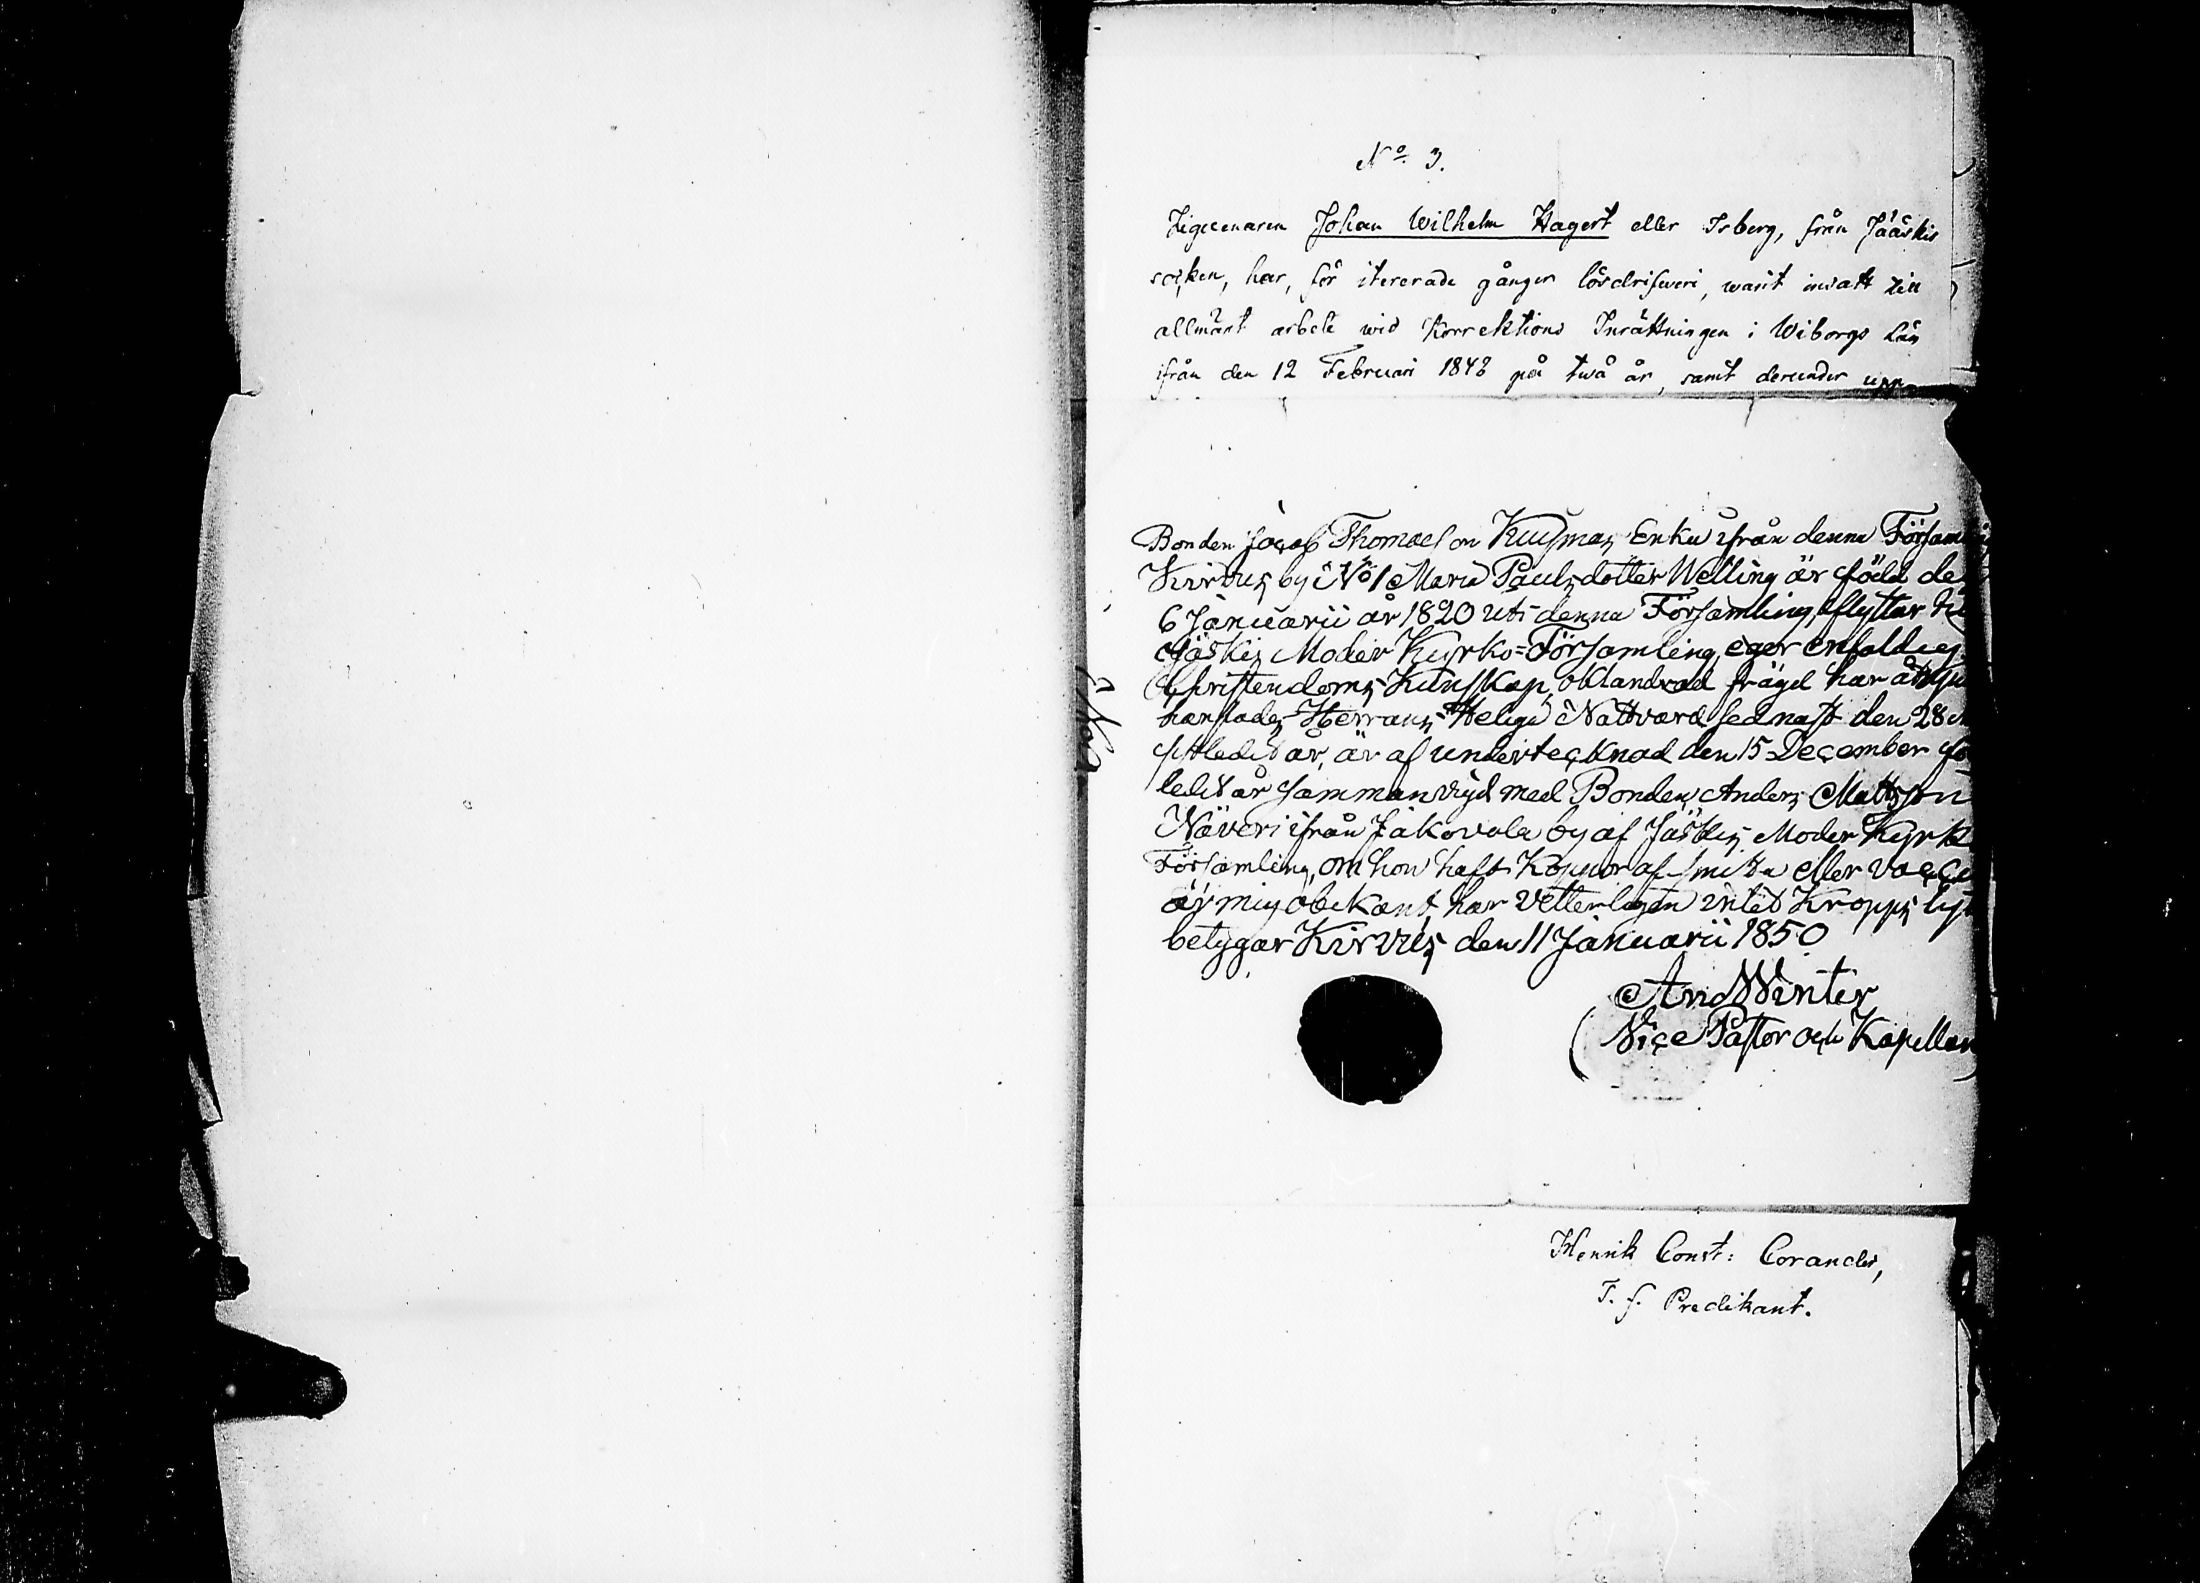 No 3.
Zigeunaren Johan Wilhelm Hagert eller Isberg, från Jääskis
socken, har, för itererade gånger lösdrifweri, warit insatt till
allmänt arbete wid Korrektions Inrättningen i Wiborgs Län
ifrån den 12 Februari 1848 på twå år, samt derunder upp-
Bonden Jacob Thomasson Kuismas Enka ifrån denna Försam
Kirvus by No 1 Maria Paulsdotter Welling är född de
6 Januarii år 1820 uti denna Församling, flyttar
Jäskis Moder Kyrko=Församling, eger enfaldig
Christendoms Kunskap, oklandrad frägd har
Herrans Heliga Nattvard sednast den 28
år, är af undertecknad den 15 December
ledit år sammanvigd med Bonden Anders Mattsson
Näveri ifrån Jäkovala by af Jäskis Moder Kyrk
Församling, om hon haft Koppor af smitta eller vacci
är mig obekant, har vetterligen intet Kropps lyt
betygar Kirvus den 11 Januarii 1850
And Winter
Vice Pastor och Kapellan
Henrik Const: Corander,
T. f. Predikant.